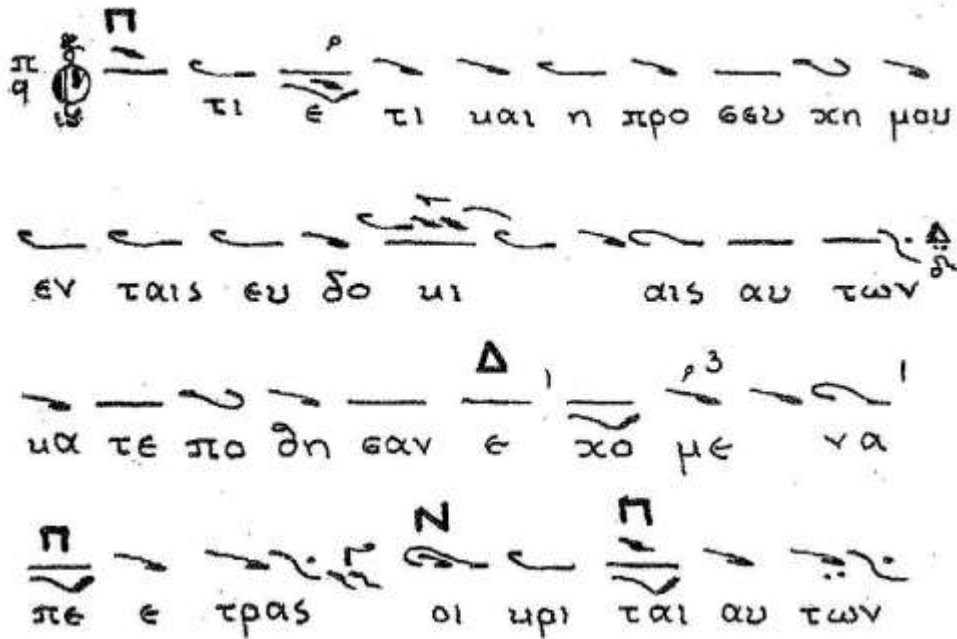 Π
π q
τι ε τι και η προ σευ χη μου
εν ταις ευ δο κι αις αυ των Δ
Δ
κα τε πο θη σαν ε χο με να
Π Γ Ν Π
πε ε τρας οι κρι ται αυ των